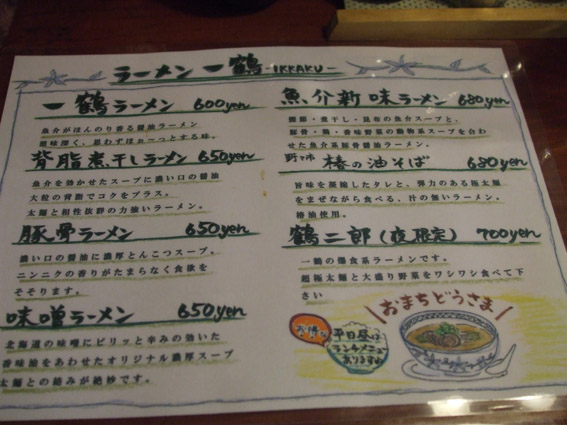 ラーメン 一鶴 -IKKAKU-
一鶴ラーメン 600yen
魚介がほんのり香る醤油ラーメン
滋味深く、思わずほぉ～っとする味。
背脂煮干しラーメン 650yen
魚介を効かせたスープに濃い口の醤油
大粒の背脂でコクをプラス。
太麺と相性抜群の力強いラーメン。
豚骨ラーメン 650yen
濃い口の醤油に濃厚とんこつスープ。
ニンニクの香りがたまらなく食欲を
そそります。
味噌ラーメン 650yen
北海道の味噌にピリッと辛みの効いた
香味油をあわせたオリジナル濃厚スープ
太麺との絡みが絶妙です。
魚介新味ラーメン 680yen
鰹節・煮干し・昆布の魚介スープと、
豚骨・鶏・香味野菜の動物系スープを合わ
せた魚介系豚骨醤油ラーメン
野々市 椿の油そば 680yen
旨味を凝縮したタレと、弾力のある極太麺
をまぜながら食べる、汁の無いラーメン。
椿油使用。
鶴二郎(夜限定) 700yen
一鶴の爆食系ラーメンです。
超極太麺と大盛り野菜をワシワシ食べて下
さい
おまちどうさま
お得な
平日昼は
ランチメニュー
あります